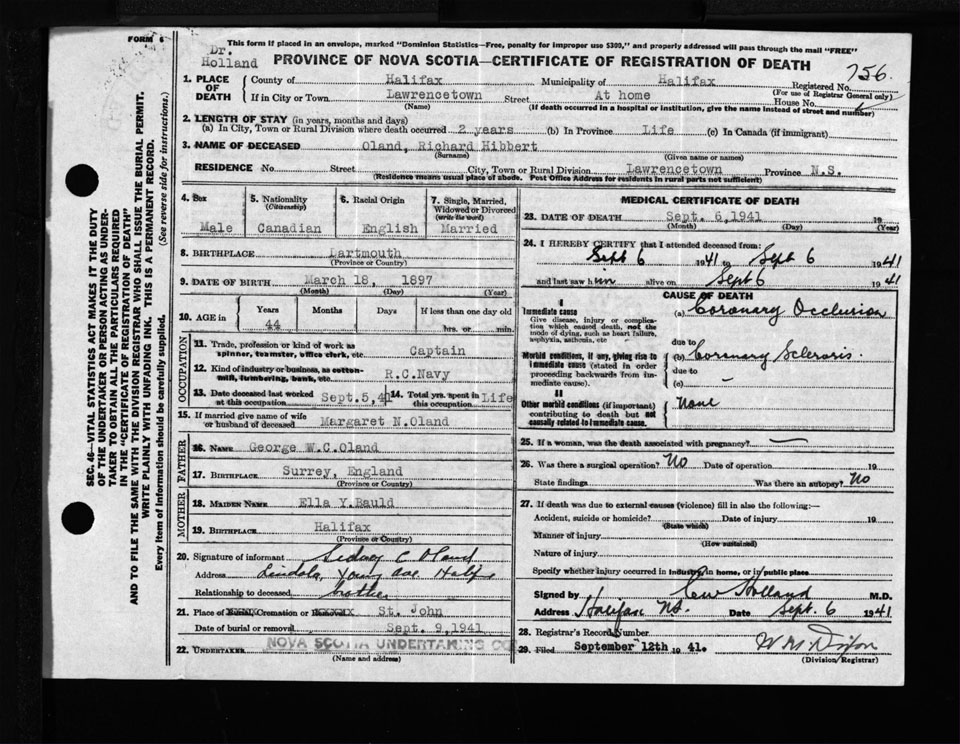 FORM 6
This form if placed in an envelope, marked "Dominion Statistics—Free, penalty for improper use $300," and properly addressed will pass through the mail "FREE"
Dr.
Holland
PROVINCE OF NOVA SCOTIA—CERTIFICATE OF REGISTRATION OF DEATH
756.
1. PLACE OF DEATH
County of Halifax Municipality of Halifax Registered No.
(For use of Registrar General only)
If in City or Town Lawrencetown Street At home House No.
(Name) (If death occurred in a hospital or institution, give the name instead of street and number)
2. LENGTH OF STAY (in years, months and days)
(a) In City, Town or Rural Division where death occurred 2 years (b) In Province Life (c) In Canada (if immigrant)
3. NAME OF DECEASED Oland, Richard Hibbert
(Surname) (Given name or names)
RESIDENCE No. Street City, Town or Rural Division Lawrencetown Province N.S.
(Residence means usual place of abode. Post Office Address for residents in rural parts not sufficient)
4. Sex Male
5. Nationality (Citizenship) Canadian
6. Racial Origin English
7. Single, Married, Widowed or Divorced (write the word) Married
8. BIRTHPLACE Dartmouth
(Province or Country)
9. DATE OF BIRTH March 18, 1897
(Month) (Day) (Year)
10. AGE in Years Months Days If less than one day old
44 hrs. or min.
OCCUPATION
11. Trade, profession or kind of work as spinner, teamster, office clerk, etc. Captain
12. Kind of industry or business, as cotton-mill, lumbering, bank, etc. R.C.Navy
13. Date deceased last worked at this occupation Sept.5,41
14. Total yrs. spent in this occupation Life
15. If married give name of wife or husband of deceased Margaret N.Oland
FATHER
16. Name George W.C.Oland
17. Birthplace Surrey, England
(Province or Country)
MOTHER
18. Maiden Name Ella Y.Bauld
19. Birthplace Halifax
(Province or Country)
20. Signature of informant Sidney C Oland
Address Lindola, Young Ave Halifx
Relationship to deceased brother
21. Place of Burial Cremation or Removal St. John
Date of burial or removal Sept. 9,1941
22. UNDERTAKER NOVA SCOTIA UNDERTAKING CO
(Name and address)
MEDICAL CERTIFICATE OF DEATH
23. DATE OF DEATH Sept. 6,1941 19
(Month) (Day)
24. I HEREBY CERTIFY that I attended deceased from:
Sept 6 1941 to Sept 6 1941
and last saw him alive on Sept 6 1941
CAUSE OF DEATH
I
Immediate cause
Give disease, injury or complication which caused death, not the mode of dying, such as heart failure, asphyxia, asthenia, etc.
(a) Coronary Occlusion
due to
Morbid conditions, if any, giving rise to immediate cause (stated in order proceeding backwards from immediate cause).
(b) Coronary Sclerosis.
due to
(c) —
II
Other morbid conditions (if important) contributing to death but not causally related to immediate cause.
None
25. If a woman, was the death associated with pregnancy? —
26. Was there a surgical operation? No Date of operation 19
State findings Was there an autopsy? No
27. If death was due to external causes (violence) fill in also the following:—
Accident, suicide or homicide? Date of injury 19
(State which)
Manner of injury
(How sustained)
Nature of injury
Specify whether injury occurred in industry, in home, or in public place
Signed by C W Holland M.D.
Address Halifax NS. Date Sept. 6 1941
28. Registrar's Record Number
29. Filed September 12th 1941.
(Division Registrar)
SEC. 46—VITAL STATISTICS ACT MAKES IT THE DUTY
OF THE UNDERTAKER OR PERSON ACTING AS UNDER-
TAKER TO OBTAIN ALL THE PARTICULARS REQUIRED
IN THE "CERTIFICATE OF REGISTRATION OF DEATH"
AND TO FILE THE SAME WITH THE DIVISION REGISTRAR WHO SHALL ISSUE THE BURIAL PERMIT.
WRITE PLAINLY WITH UNFADING INK. THIS IS A PERMANENT RECORD.
Every item of Information should be carefully supplied. (See reverse side for instructions.)